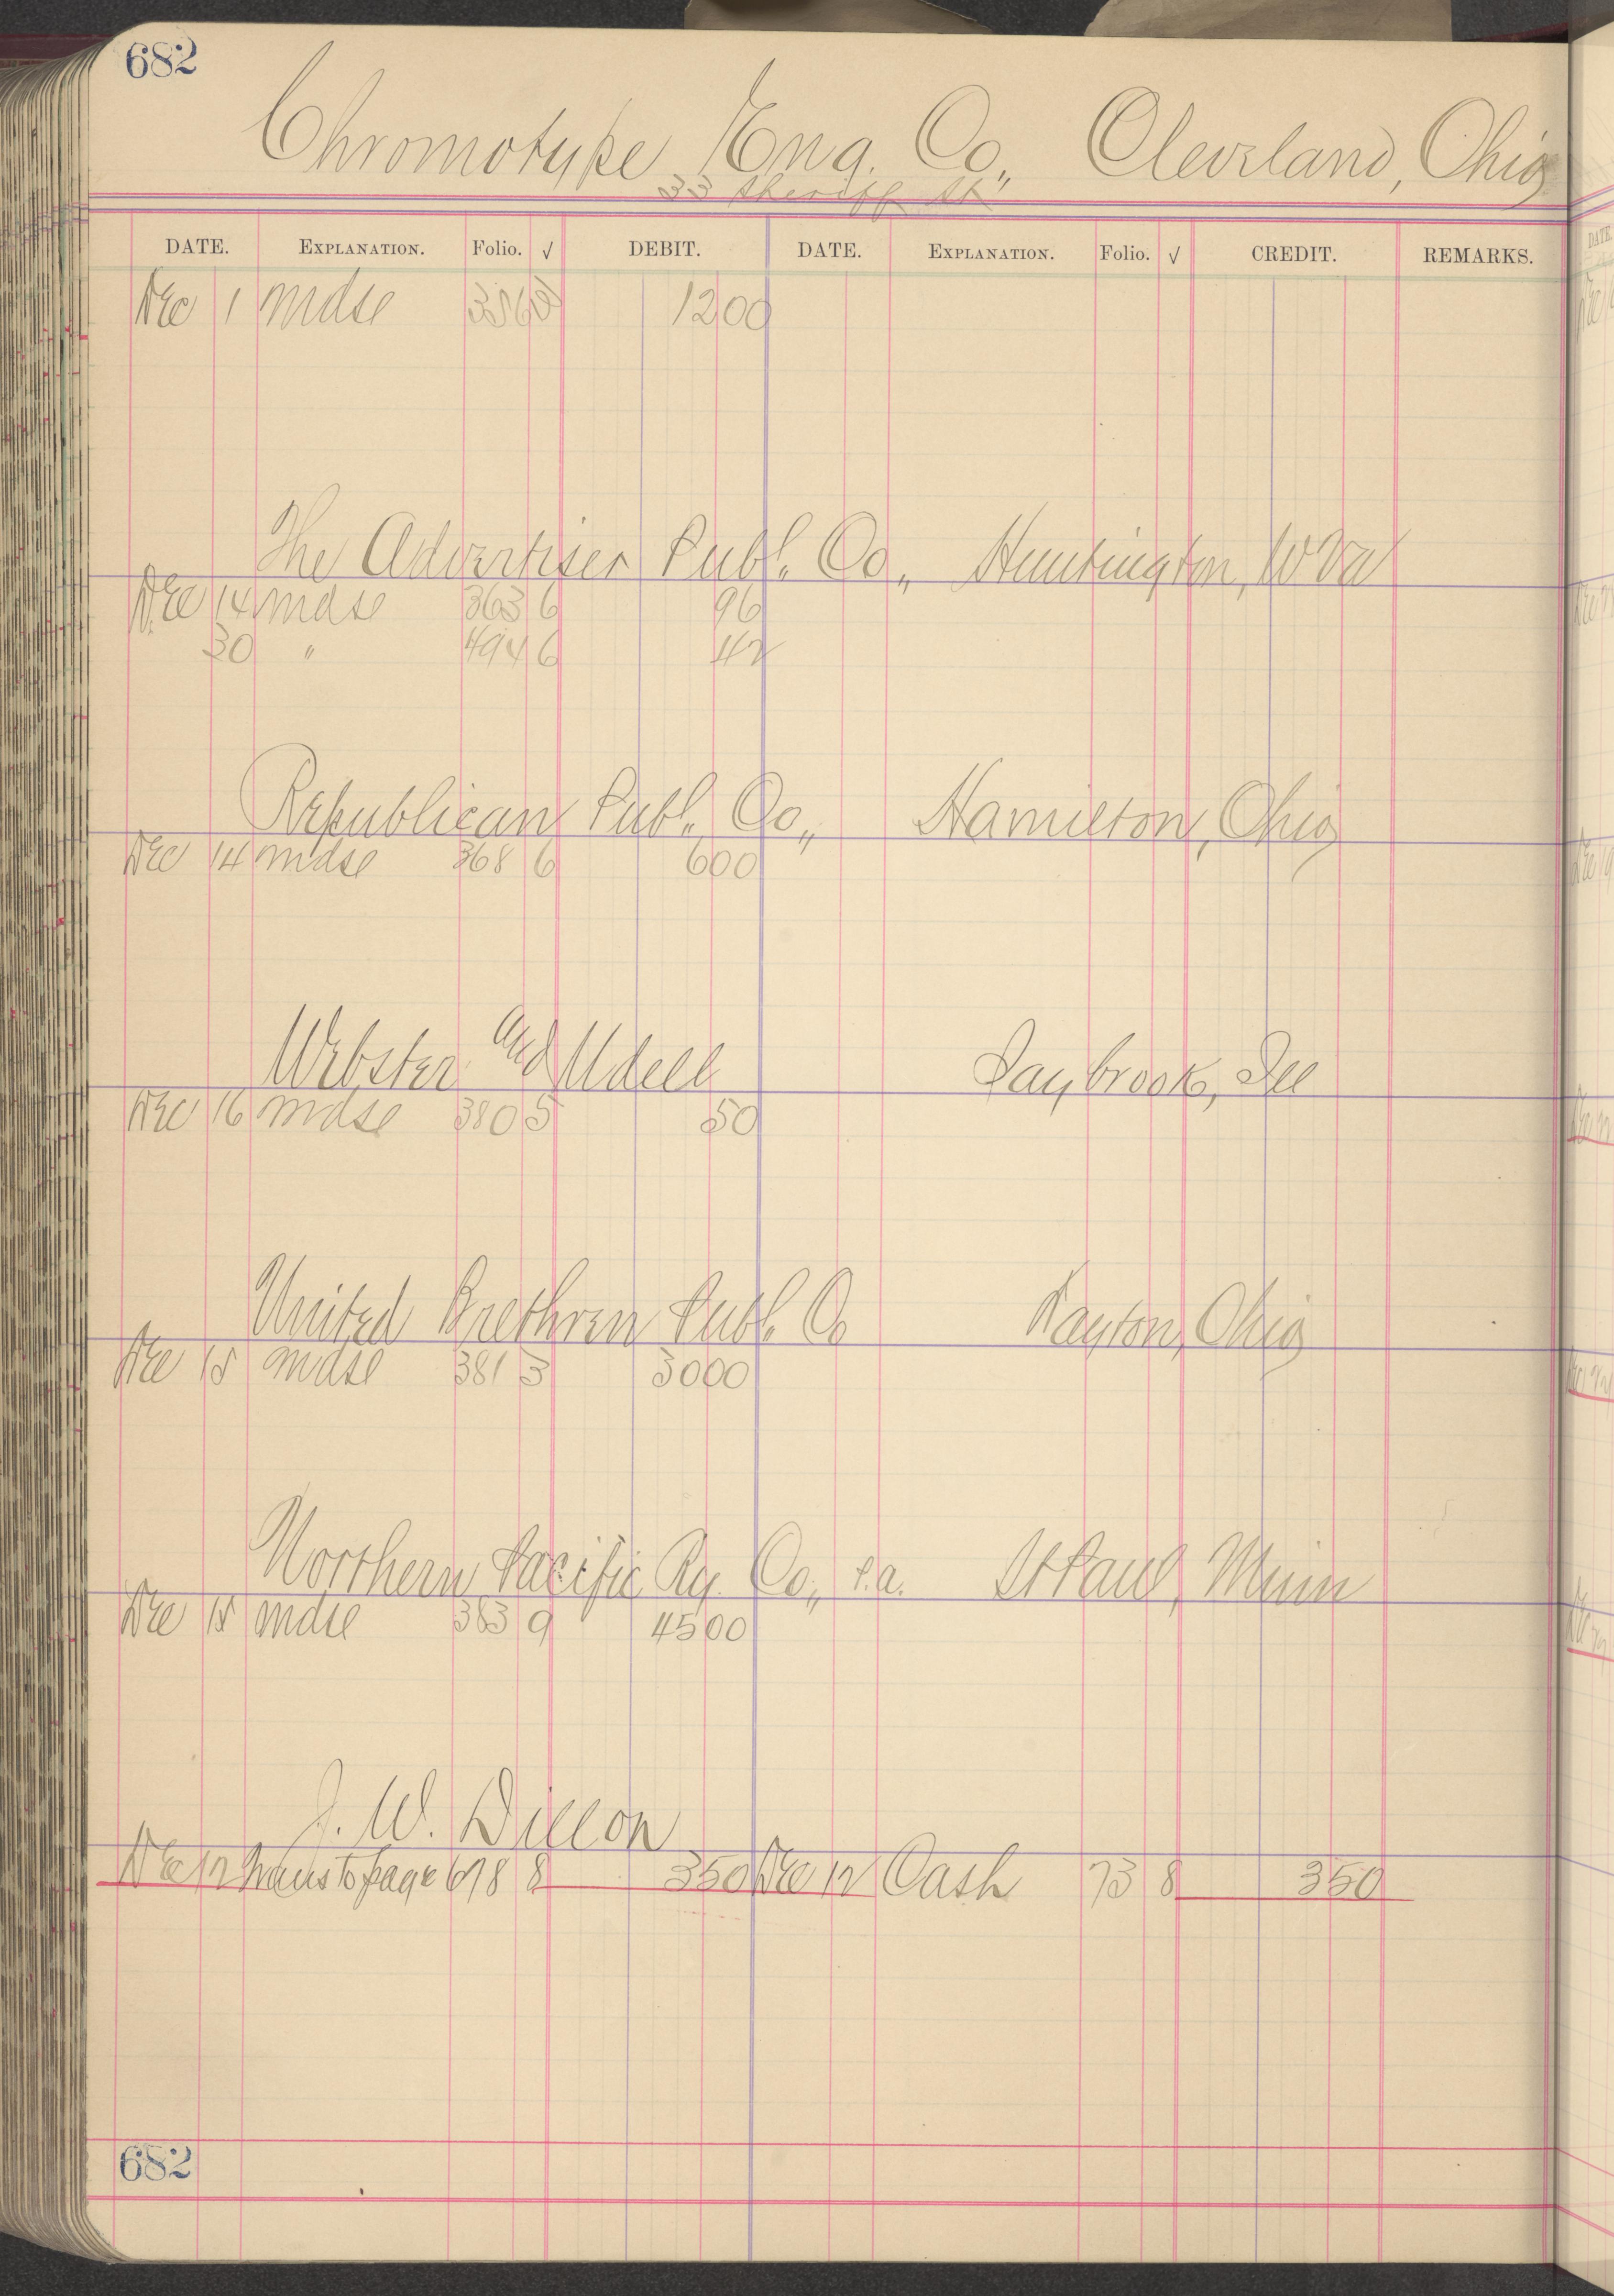 682
Chromotype Eng. Co., Cleveland, Ohio
33 Sheriff St
DATE. EXPLANATION. Folio. √ DEBIT. DATE. EXPLANATION. Folio. √ CREDIT. REMARKS.
Dec 1 mdse 1200
The Advertiser Publ. Co., Huntington, W Va
Dec 14 mdse 363 6 96
30 " 494 6 42
Republican Publ. Co., Hamilton, Ohio
Dec 14 mdse 368 6 600
Webster and Udell Saybrook, Ill
Dec 16 mdse 380 5 50
United Brethren Publ. Co Dayton, Ohio
Dec 15 mdse 381 3 3000
Northern Pacific Ry. Co., P.a. St Paul, Minn
Dec 15 mdse 383 9 4500
J. W. Dillon
Dec 12 trans to page 678 8 350 Dec 12 Cash 73 8 350
682